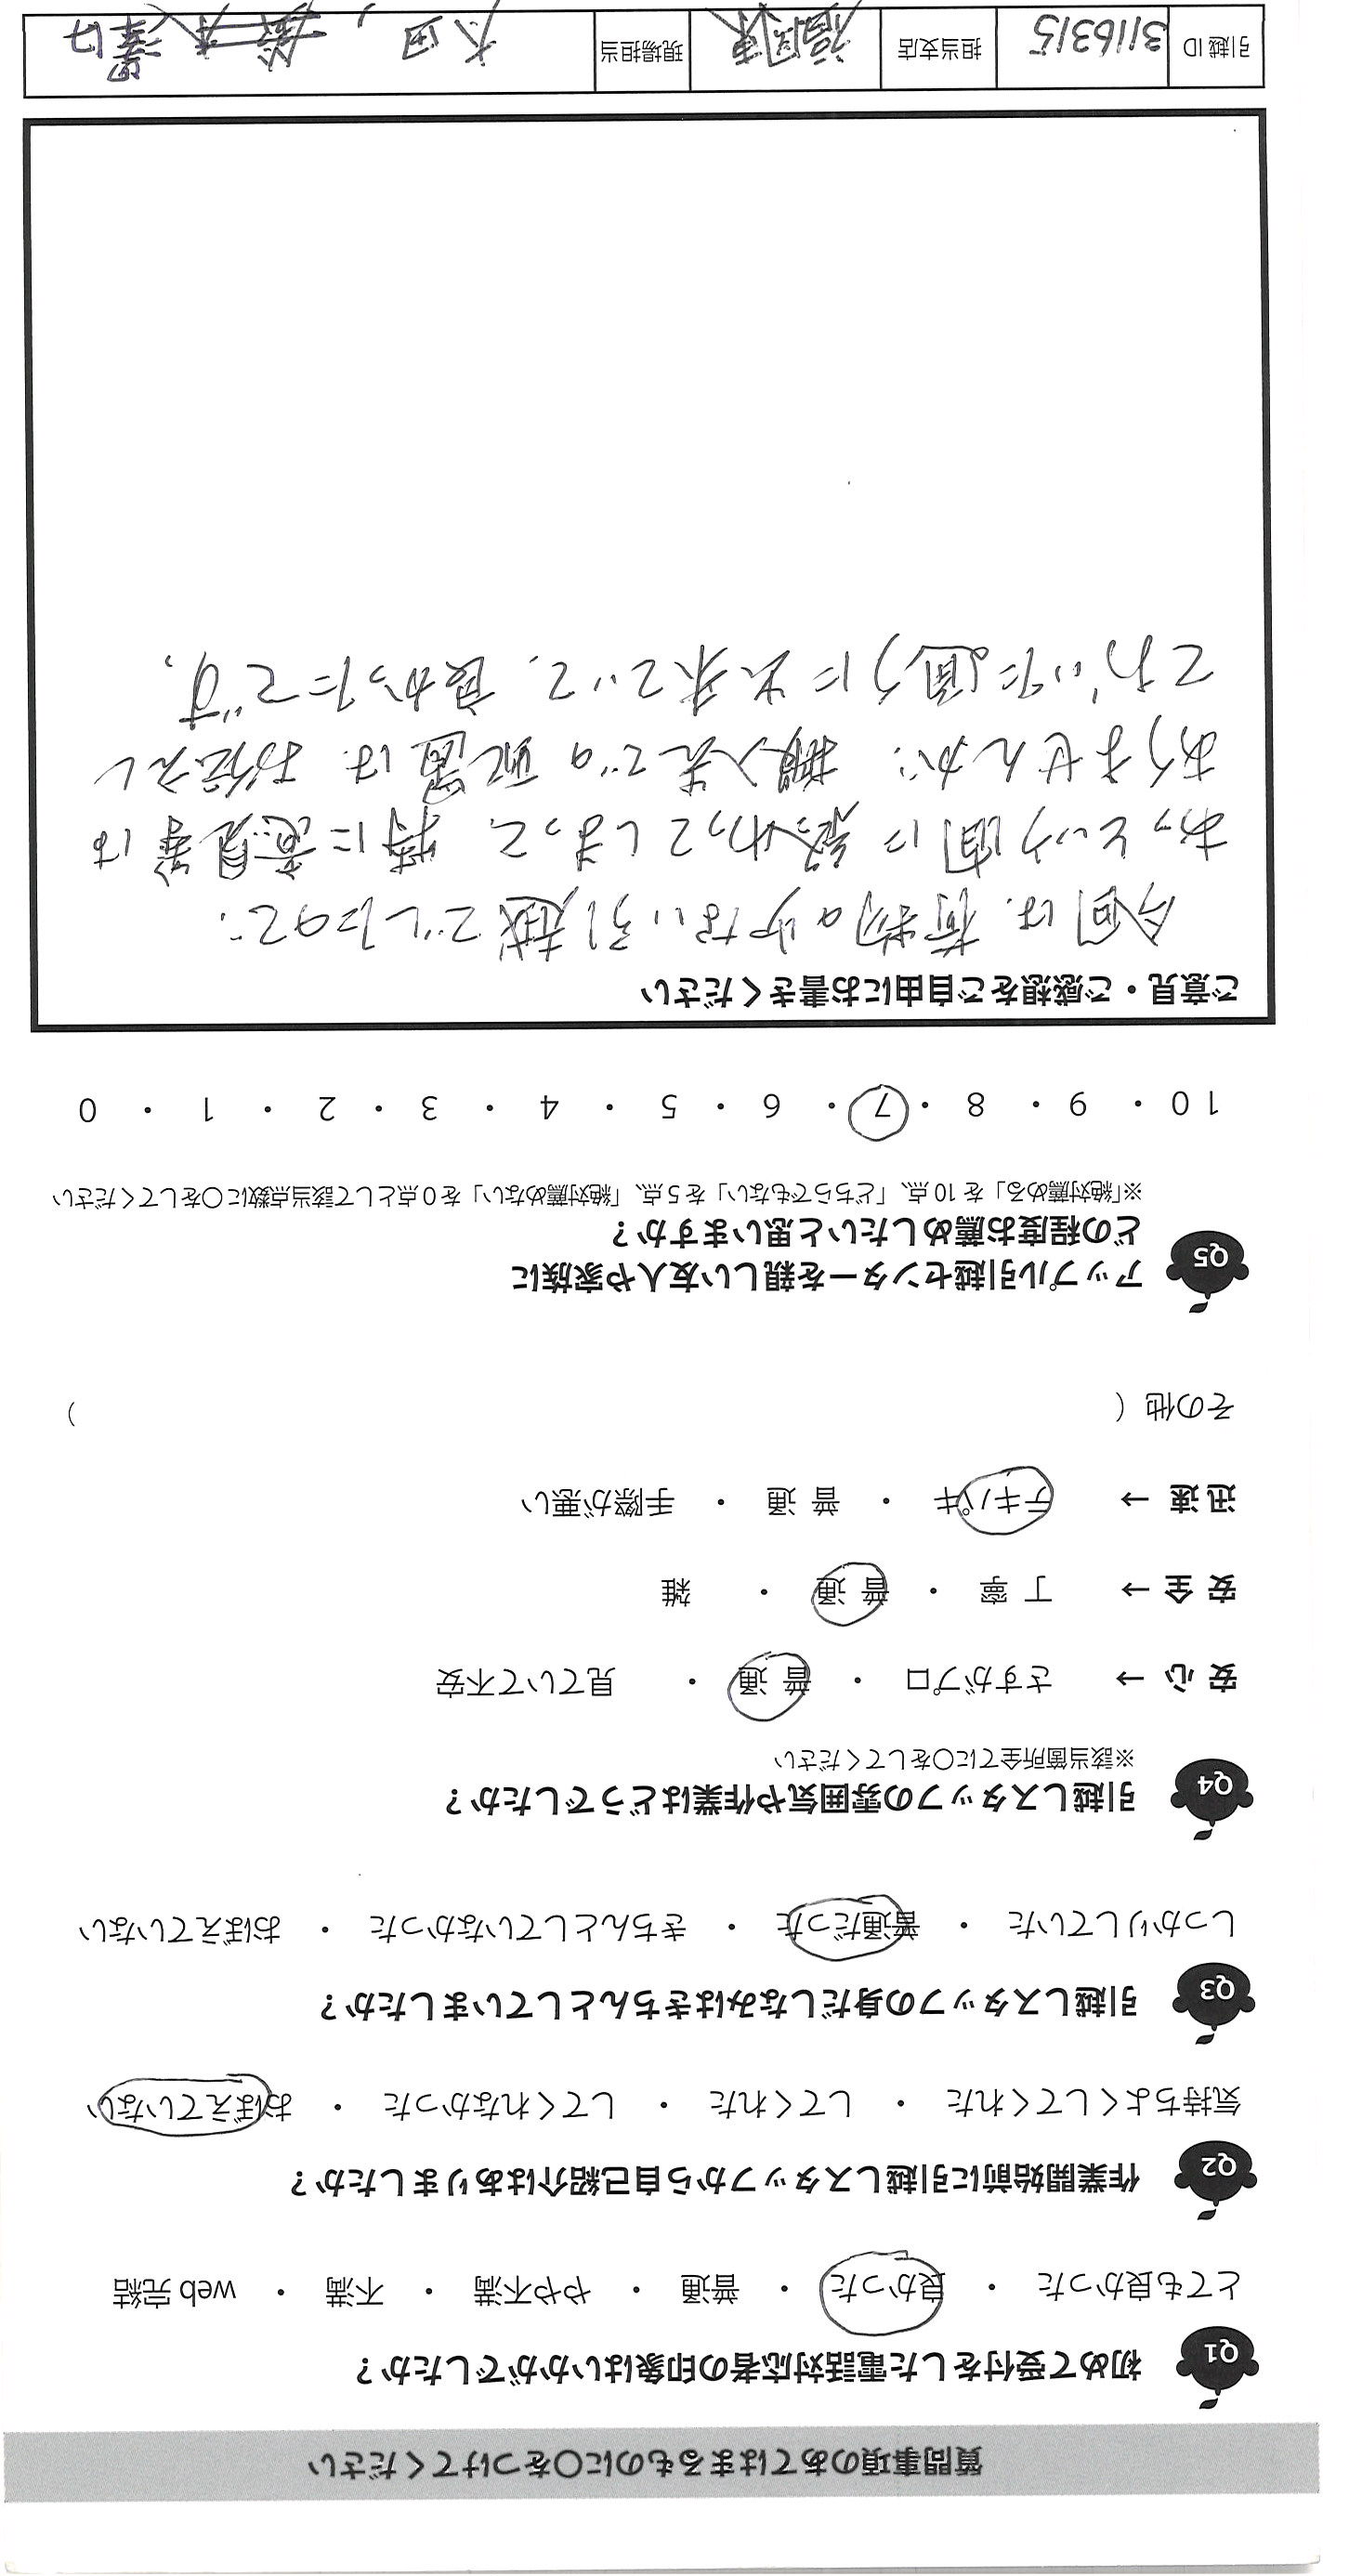 質問事項のあてはまるものに○をつけてください
Q1 初めて受付をした電話対応者の印象はいかがでしたか？
とても良かった ・ 良かった ・ 普通 ・ やや不満 ・ 不満 ・ web 完結
Q2 作業開始前に引越しスタッフから自己紹介はありましたか？
気持ちよくしてくれた ・ してくれた ・ してくれなかった ・ おぼえていない
Q3 引越しスタッフの身だしなみはきちんとしていましたか？
しっかりしていた ・ 普通だった ・ きちんとしていなかった ・ おぼえていない
Q4 引越しスタッフの雰囲気や作業はどうでしたか？
※該当箇所全てに○をしてください
安心 → さすがプロ ・ 普通 ・ 見ていて不安
安全 → 丁寧 ・ 普通 ・ 雑
迅速 → テキパキ ・ 普通 ・ 手際が悪い
その他（ ）
Q5 アップル引越センターを親しい友人や家族に
どの程度お薦めしたいと思いますか？
※「絶対薦める」を 10 点、「どちらでもない」を 5 点、「絶対薦めない」を 0 点として該当点数に○をしてください
10 ・ 9 ・ 8 ・ 7 ・ 6 ・ 5 ・ 4 ・ 3 ・ 2 ・ 1 ・ 0
ご意見・ご感想をご自由にお書きください
今回は、荷物の少ない引越でしたので、
あっという間に終わってしまって、特に意見等は
ありませんが、搬入先での配置は、お伝えし
ていた通りに出来ていて、良かったです。
引越ID 3116315 担当支店 福岡東 現場担当 太田、